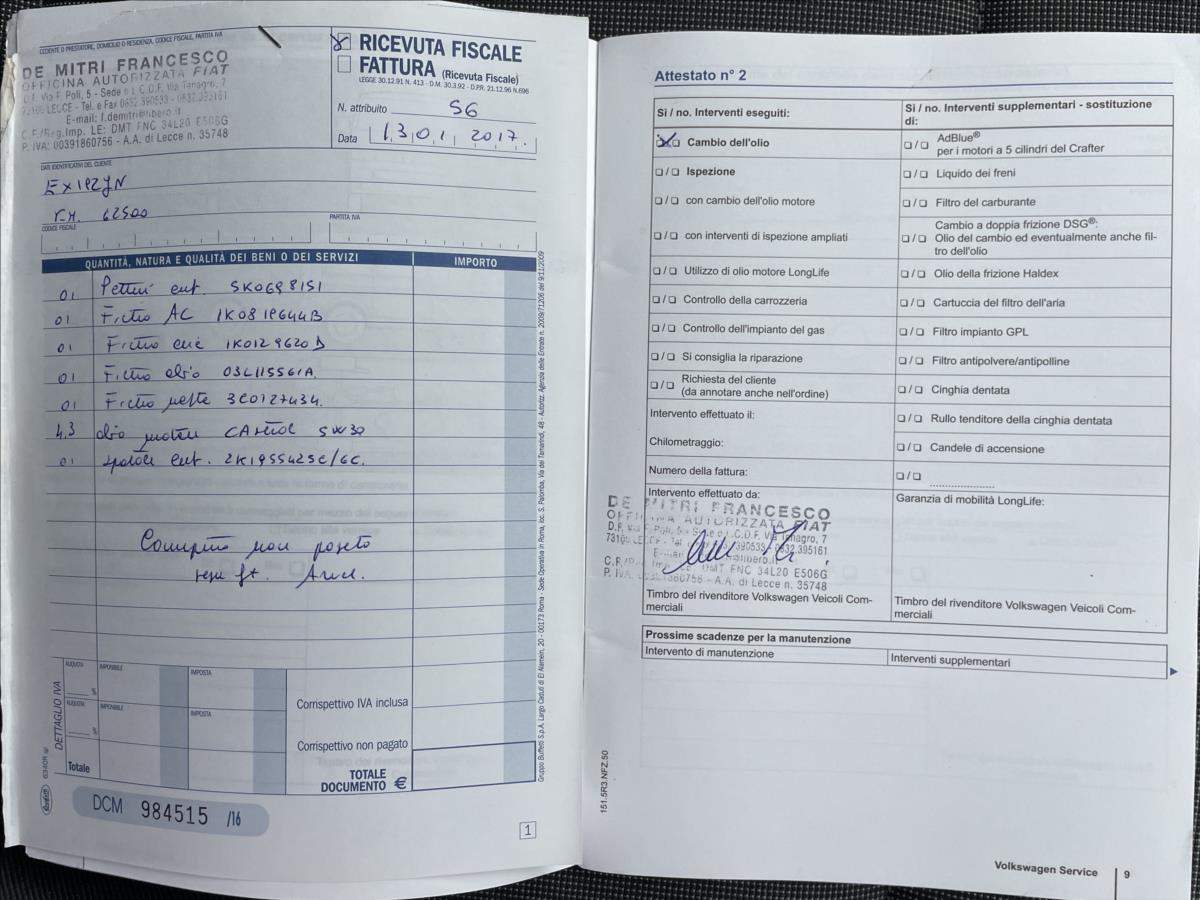 CEDENTE O PRESTATORE, DOMICILIO O RESIDENZA, CODICE FISCALE, PARTITA IVA
DE MITRI FRANCESCO
OFFICINA AUTORIZZATA FIAT
D.F. Via F. Poli, 5 - Sede e L.C.D.F. Via Tanagro, 7
73100 LECCE - Tel. e Fax 0832.390533 - 0832.395161
E-mail: f.demitri@libero.it
C.F./Reg.Imp. LE: DMT FNC 34L20 E506G
P. IVA: 00391860756 - A.A. di Lecce n. 35748
RICEVUTA FISCALE
FATTURA (Ricevuta Fiscale)
LEGGE 30.12.91 N. 413 - D.M. 30.3.92 - D.P.R. 21.12.96 N.696
N. attribuito 56
Data 13 01 2017
DATI IDENTIFICATIVI DEL CLIENTE
EX192JN
K.M. 62500
CODICE FISCALE
PARTITA IVA
QUANTITÀ, NATURA E QUALITÀ DEI BENI O DEI SERVIZI
IMPORTO
01 ant. 5K0698151
01 Filtro AC 1K0819644B
01 Filtro 1K0129620D
01 Filtro olio 03L115561A
01 Filtro 3C0127434
4.3 olio motore CASTROL 5W30
01 ant. 2K1955425C/6C.
DETTAGLIO IVA
ALIQUOTA
IMPONIBILE
IMPOSTA
%
ALIQUOTA
IMPONIBILE
IMPOSTA
%
Totale
Corrispettivo IVA inclusa
Corrispettivo non pagato
TOTALE
DOCUMENTO €
DCM 984515 /16
1
Buffetti
Attestato n° 2
Sì / no. Interventi eseguiti:
Cambio dell'olio
/ Ispezione
/ con cambio dell'olio motore
/ con interventi di ispezione ampliati
/ Utilizzo di olio motore LongLife
/ Controllo della carrozzeria
/ Controllo dell'impianto del gas
/ Si consiglia la riparazione
/ Richiesta del cliente
(da annotare anche nell'ordine)
Intervento effettuato il:
Chilometraggio:
Numero della fattura:
Intervento effettuato da:
DE MITRI FRANCESCO
OFFICINA AUTORIZZATA FIAT
D.F. Via F. Poli, 5 - Sede e L.C.D.F. Via Tanagro, 7
73100 LECCE - Tel. 390533 - 0832.395161
E-mail libero.it
DMT FNC 34L20 E506G
P. IVA: 00391860756 - A.A. di Lecce n. 35748
Timbro del rivenditore Volkswagen Veicoli Com-
merciali
Sì / no. Interventi supplementari - sostituzione
di:
/ AdBlue®
per i motori a 5 cilindri del Crafter
/ Liquido dei freni
/ Filtro del carburante
/ Cambio a doppia frizione DSG®:
Olio del cambio ed eventualmente anche fil-
tro dell'olio
/ Olio della frizione Haldex
/ Cartuccia del filtro dell'aria
/ Filtro impianto GPL
/ Filtro antipolvere/antipolline
/ Cinghia dentata
/ Rullo tenditore della cinghia dentata
/ Candele di accensione
/ ....................
Garanzia di mobilità LongLife:
Timbro del rivenditore Volkswagen Veicoli Com-
merciali
Prossime scadenze per la manutenzione
Intervento di manutenzione
Interventi supplementari
151.5R3.NFZ.50
Volkswagen Service 9